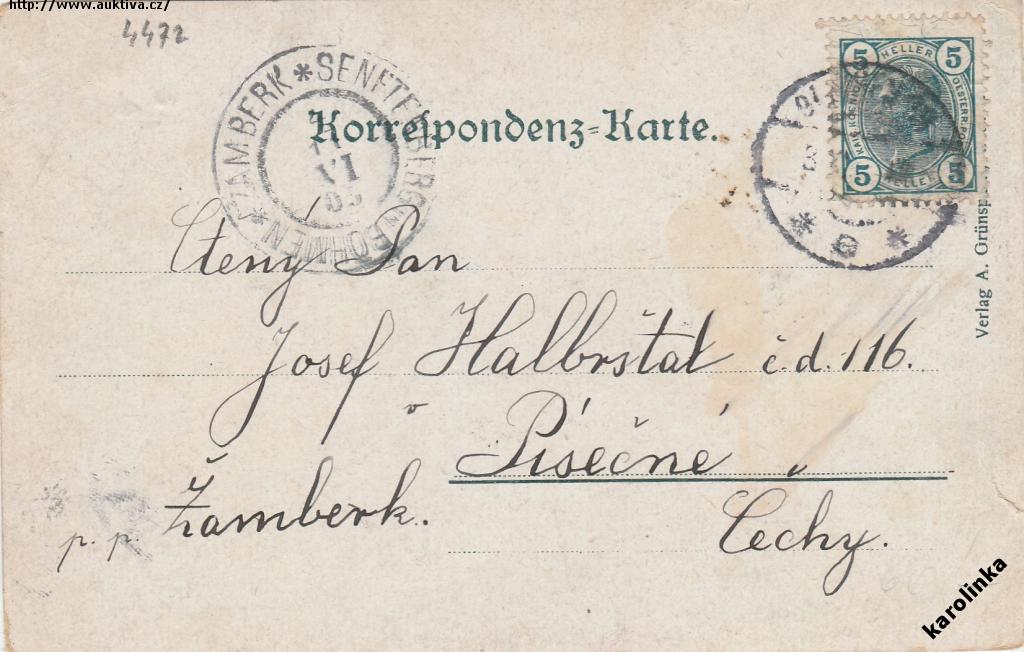 http://www.auktiva.cz/
4472
ŽAMBERK * SENFTENBERG BÖHMEN *
VI
Korrespondenz-Karte.
5 HELLER 5
5 HELLER 5
Verlag A. Grünsp
Ctený Pan
Josef Halbrštat č.d. 116.
v Písečné
p. p. Žamberk.
Čechy.
karolinka